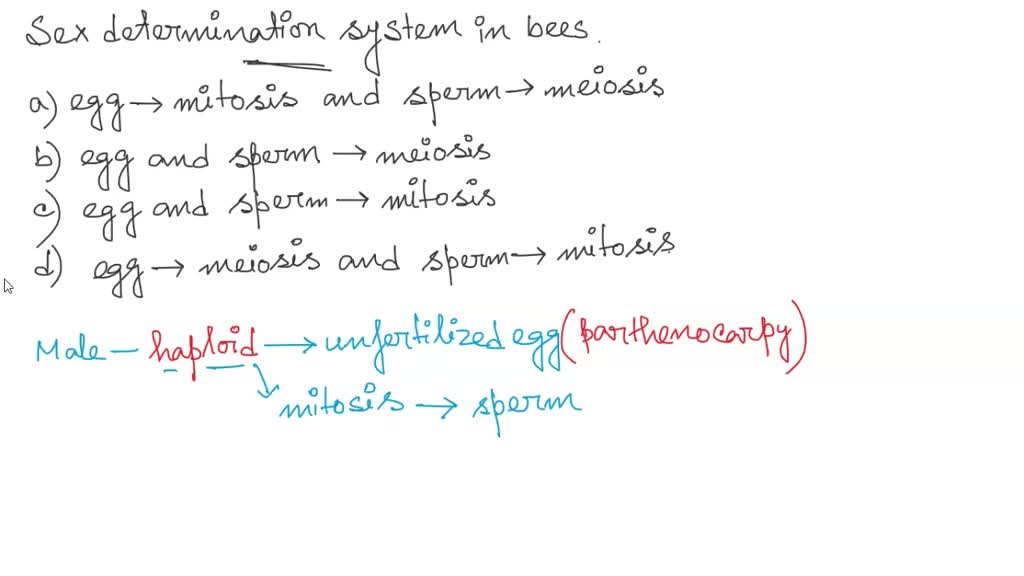 Sex determination system in bees.
a) egg → mitosis and sperm → meiosis
b) egg and sperm → meiosis
c) egg and sperm → mitosis
d) egg → meiosis and sperm → mitosis
Male - haploid → unfertilized egg (parthenocarpy)
mitosis → sperm